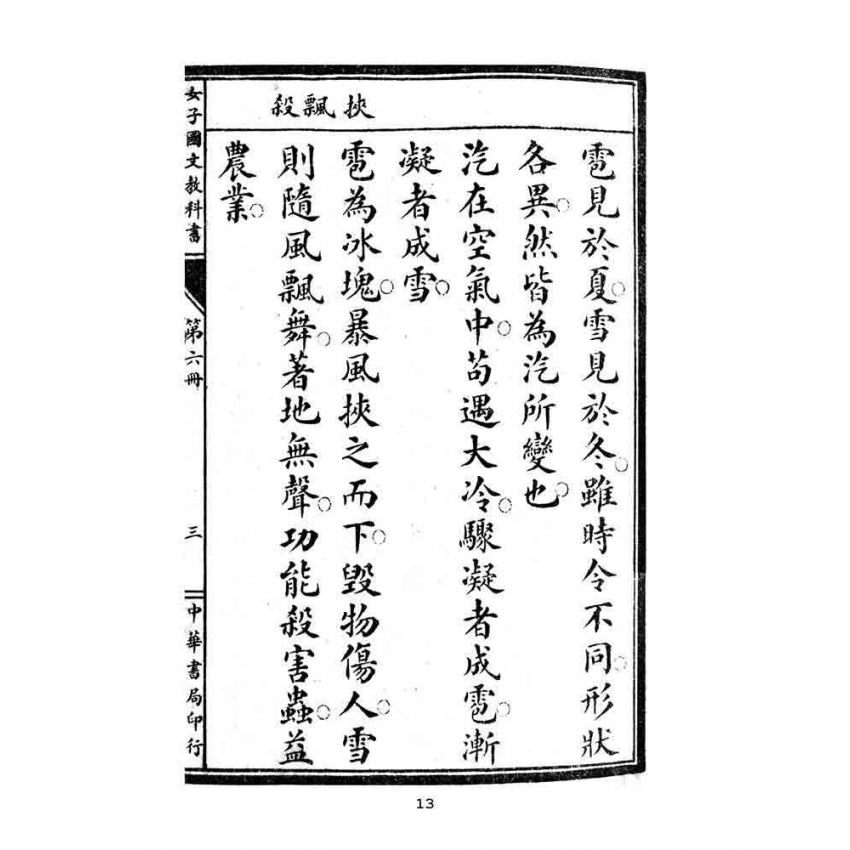 挾飄殺
雹見於夏。雪見於冬。雖時令不同。形狀
各異。然皆為汽所變也。
汽在空氣中。苟遇大冷。驟凝者成雹。漸
凝者成雪。
雹為冰塊。暴風挾之而下。毀物傷人。雪
則隨風飄舞。著地無聲。功能殺害蟲。益
農業。
女子國文教科書
第六冊
三
中華書局印行
13